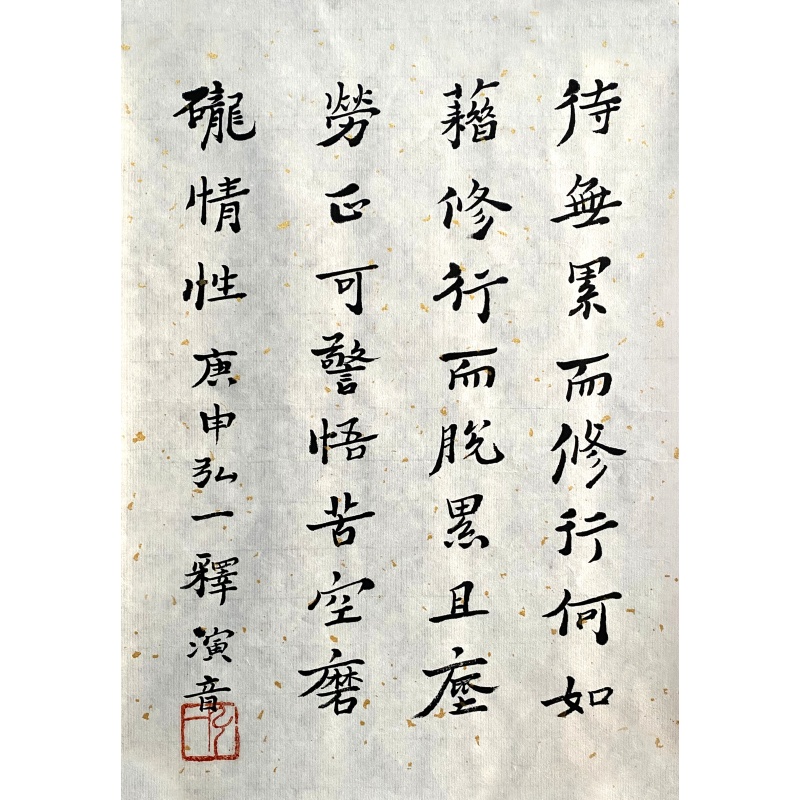 待無累而修行何如
藉修行而脱累且塵
勞正可警悟苦空磨
礲情性庚申弘一釋演音
弘一